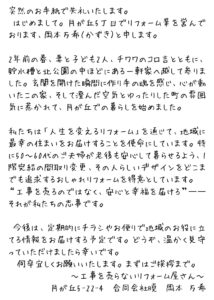 突然のお手紙で失礼いたします。
はじめまして。月が丘5丁目でリフォーム業を営んで
おります、岡本 万希(かずき)と申します。
2年前の春、妻と子ども2人、チワワのコロ吉とともに、
貯水槽と北公園の中ほどにある一軒家へ越して参りまし
た。玄関を開けた瞬間に作り手の魂を感じ、心が動
いたこの家、そして澄んだ空気とゆったりした町の雰囲
気に惹かれて、月が丘での暮らしを始めました。
私たちは「人生を変えるリフォーム」を通じて、地域に
最幸の住まいをお届けすることを使命にしています。特
に50〜60代のご夫婦が老後も安心して暮らせるよう、1
階完結の間取り変更、その人らしいデザインをどこま
でも追求するおしゃれリフォームを得意としています。
“工事を売るのではなく、安心と幸福を届ける”——
それが私たちの志事です。
今後は、定期的にチラシやお便りで地域のお役に立
てる情報をお届けする予定です。どうぞ、温かく見守
っていただけましたら幸いです。
何卒宜しくお願いいたします。まずはご挨拶まで。
〜工事を売らないリフォーム屋さん〜
月が丘5-22-4 合同会社暁 岡本 万希